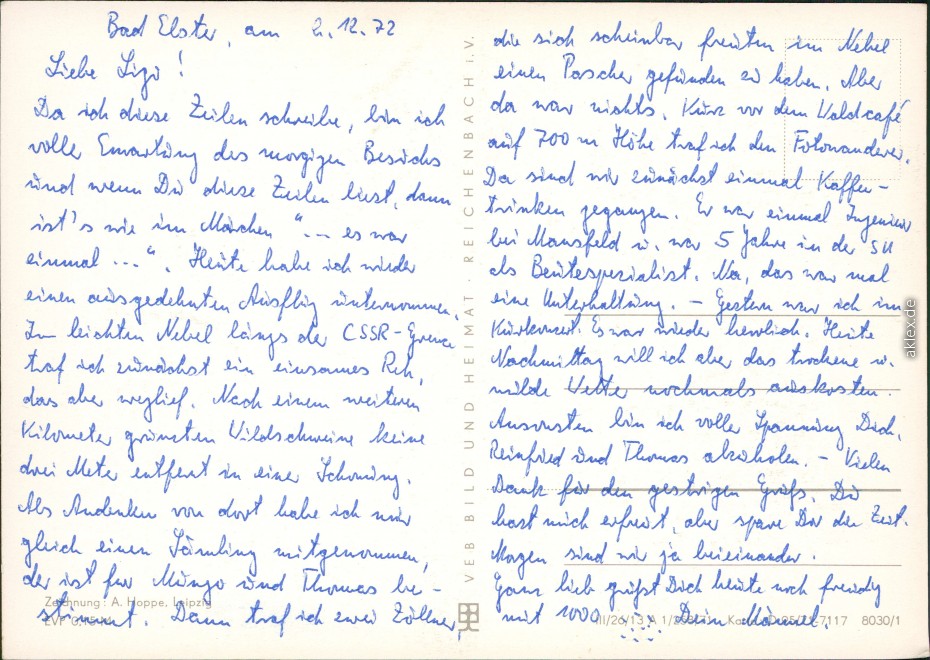 Bad Elster, am 2.12.72
Liebe Sigi!
Da ich diese Zeilen schreibe, bin ich
voller Erwartung des morgigen Besuchs
und wenn Du diese Zeilen liest, dann
ist's wie im Märchen "... es war
einmal ...". Heute habe ich wieder
einen ausgedehnten Ausflug unternommen.
Im leichten Nebel längs der CSSR-Grenze
traf ich zunächst ein einsames Reh,
das aber weglief. Nach einem weiteren
Kilometer grunzten Wildschweine keine
drei Meter entfernt in einer Schonung.
Als Andenken von dort habe ich mir
gleich einen Sämling mitgenommen,
der ist für Mungo und Thomas be-
stimmt. Dann traf ich zwei Zöllner,
Zeichnung: A. Hoppe, Leipzig
EVP
VEB BILD UND HEIMAT · REICHENBACH I.V.
die sich scheinbar freuten im Nebel
einen Pascher gefunden zu haben. Aber
da war nichts. Kurz vor dem Waldcafé
auf 700 m Höhe traf ich den Fotowanderer.
Da sind wir zunächst einmal Kaffee-
trinken gegangen. Er war einmal Ingenieur
bei Mansfeld u. war 5 Jahre in der SU
als Beutespezialist. Na, das war mal
eine Unterhaltung. – Gestern war ich im
Kurkonzert. Es war wieder herrlich. Heute
Nachmittag will ich aber das trockene u.
milde Wetter nochmals auskosten.
Ansonsten bin ich voller Spannung Dich,
Reinfried und Thomas abzuholen. – Vielen
Dank für den gestrigen Gruß. Du
hast mich erfreut, aber spare Dir die Zeit.
Morgen sind wir ja beieinander.
Ganz lieb grüßt Dich heute noch freudig
mit 1000 Dein Männel.
III/26/13 A 1/ 7117 8030/1
aklex.de